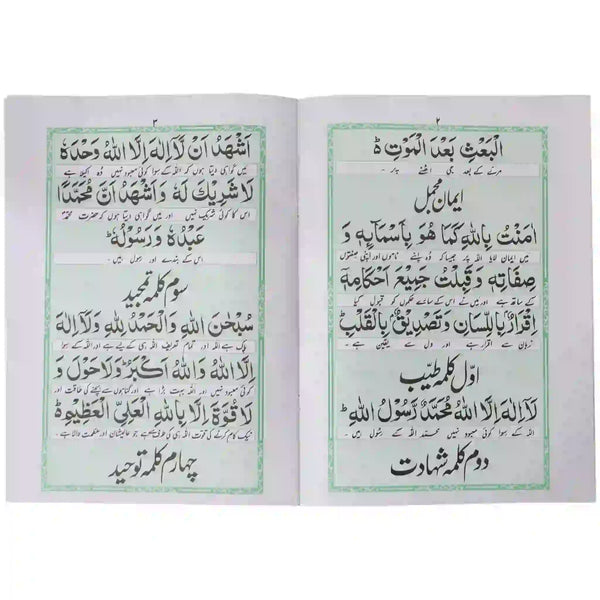 ٢
الْبَعْثِ بَعْدَ الْمَوْتِ ط
مرنے کے بعد جی اٹھنے پر ۔
ایمان مجمل
اٰمَنْتُ بِاللّٰهِ كَمَا هُوَ بِاَسْمَآئِهٖ وَ
میں ایمان لایا اللہ پر جیسا کہ وہ اپنے ناموں اور اپنی صفتوں
صِفَاتِهٖ وَقَبِلْتُ جَمِيْعَ اَحْكَامِهٖ
کے ساتھ ہے اور میں نے اس کے سارے حکموں کو قبول کیا
اِقْرَارٌ بِاللِّسَانِ وَتَصْدِيْقٌ بِالْقَلْبِ ط
زبان سے اقرار ہے اور دل سے یقین ہے ۔
اوّل کلمہ طیّب
لَآ اِلٰهَ اِلَّا اللّٰهُ مُحَمَّدٌ رَّسُوْلُ اللّٰهِ ط
اللہ کے سوا کوئی معبود نہیں محمد اللہ کے رسول ہیں ۔
دوم کلمہ شہادت
٣
اَشْهَدُ اَنْ لَّآ اِلٰهَ اِلَّا اللّٰهُ وَحْدَهٗ
میں گواہی دیتا ہوں کہ اللہ کے سوا کوئی معبود نہیں وہ اکیلا ہے
لَا شَرِيْكَ لَهٗ وَاَشْهَدُ اَنَّ مُحَمَّدًا
اس کا کوئی شریک نہیں اور میں گواہی دیتا ہوں کہ حضرت محمدؐ
عَبْدُهٗ وَرَسُوْلُهٗ ط
اس کے بندے اور رسول ہیں ۔
سوم کلمہ تمجید
سُبْحٰنَ اللّٰهِ وَالْحَمْدُ لِلّٰهِ وَلَآ اِلٰهَ
پاک ہے اللہ اور تمام تعریف اللہ ہی کے لیے ہے اور اللہ کے سوا
اِلَّا اللّٰهُ وَاللّٰهُ اَكْبَرُ ط وَلَا حَوْلَ وَ
کوئی معبود نہیں اور اللہ بہت بڑا ہے اور گناہوں سے بچنے کی طاقت اور
لَا قُوَّةَ اِلَّا بِاللّٰهِ الْعَلِيِّ الْعَظِيْمِ ط
نیک کام کرنے کی قوت اللہ ہی کی طرف سے ہے جو عالیشان اور عظمت والا ہے ۔
چہارم کلمہ توحید